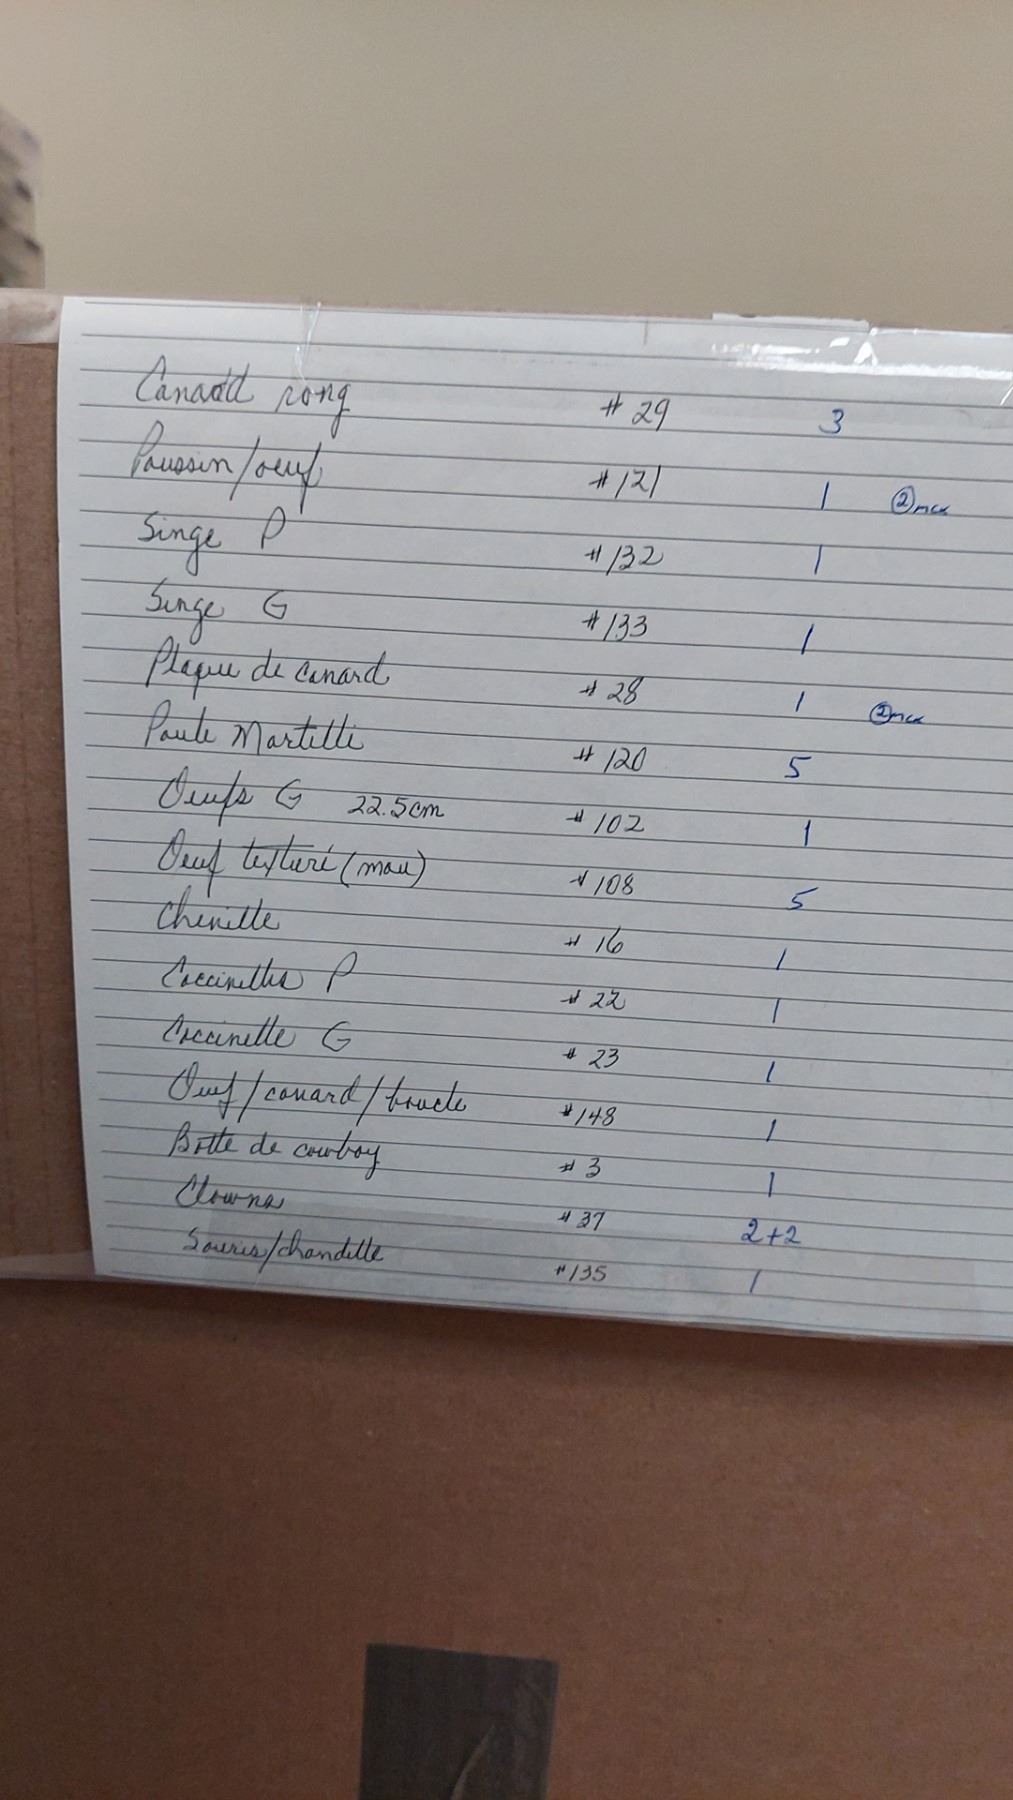 Canard rong # 29 3
Poussin/oeuf # 121 1 ② mcx
Singe P # 132 1
Singe G # 133 1
Plaque de canard # 28 1 ② mcx
Poule Martelli # 120 5
Oeufs G 22.5cm # 102 1
Oeuf texturé (mou) # 108 5
Chenille # 16 1
Coccinelles P # 22 1
Coccinelle G # 23 1
Oeuf/canard/boucle # 148 1
Botte de cowboy # 3 1
Clowns # 37 2+2
Souris/chandelle # 135 1